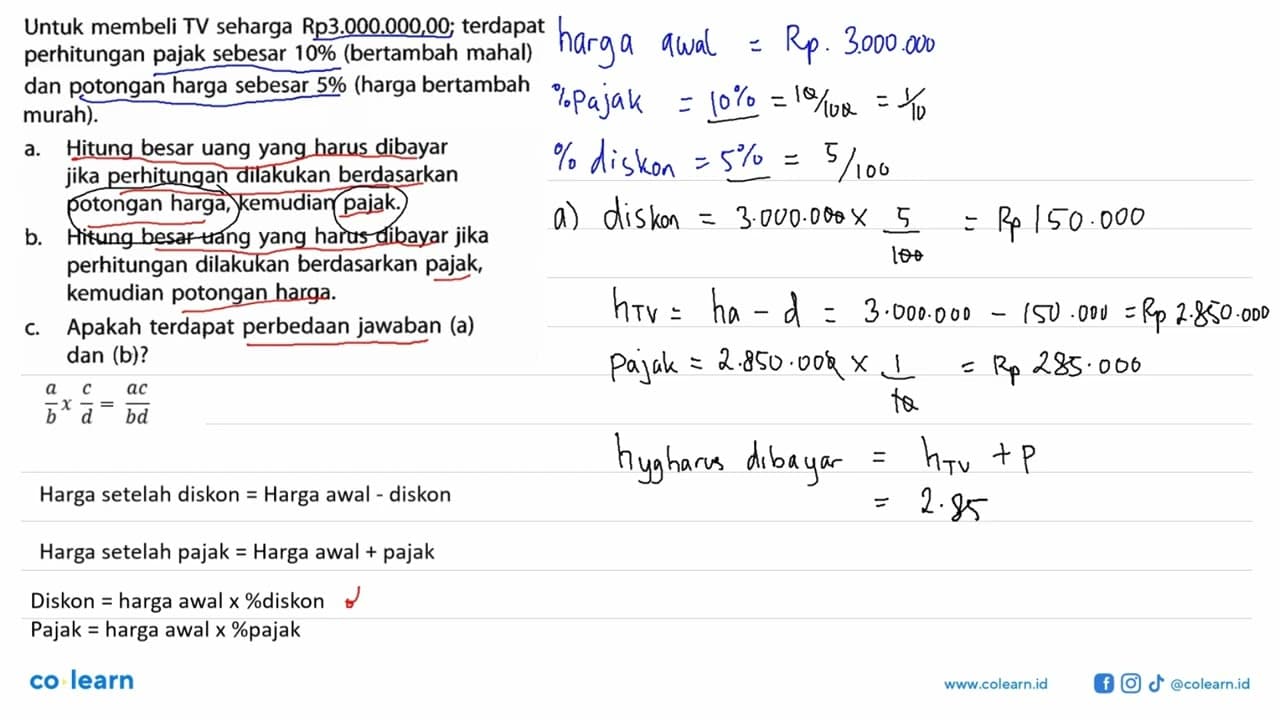 Untuk membeli TV seharga Rp3.000.000,00; terdapat
perhitungan pajak sebesar 10% (bertambah mahal)
dan potongan harga sebesar 5% (harga bertambah
murah).
a. Hitung besar uang yang harus dibayar
jika perhitungan dilakukan berdasarkan
potongan harga, kemudian pajak.
b. Hitung besar uang yang harus dibayar jika
perhitungan dilakukan berdasarkan pajak,
kemudian potongan harga.
c. Apakah terdapat perbedaan jawaban (a)
dan (b)?
a/b x c/d = ac/bd
Harga setelah diskon = Harga awal - diskon
Harga setelah pajak = Harga awal + pajak
Diskon = harga awal x %diskon
Pajak = harga awal x %pajak
harga awal = Rp. 3.000.000
% Pajak = 10% = 10/100 = 1/10
% diskon = 5% = 5/100
a) diskon = 3.000.000 x 5/100 = Rp 150.000
hTV = ha - d = 3.000.000 - 150.000 = Rp 2.850.000
Pajak = 2.850.000 x 1/10 = Rp 285.000
hyg harus dibayar = hTV + P
= 2.85
co learn
www.colearn.id
@colearn.id